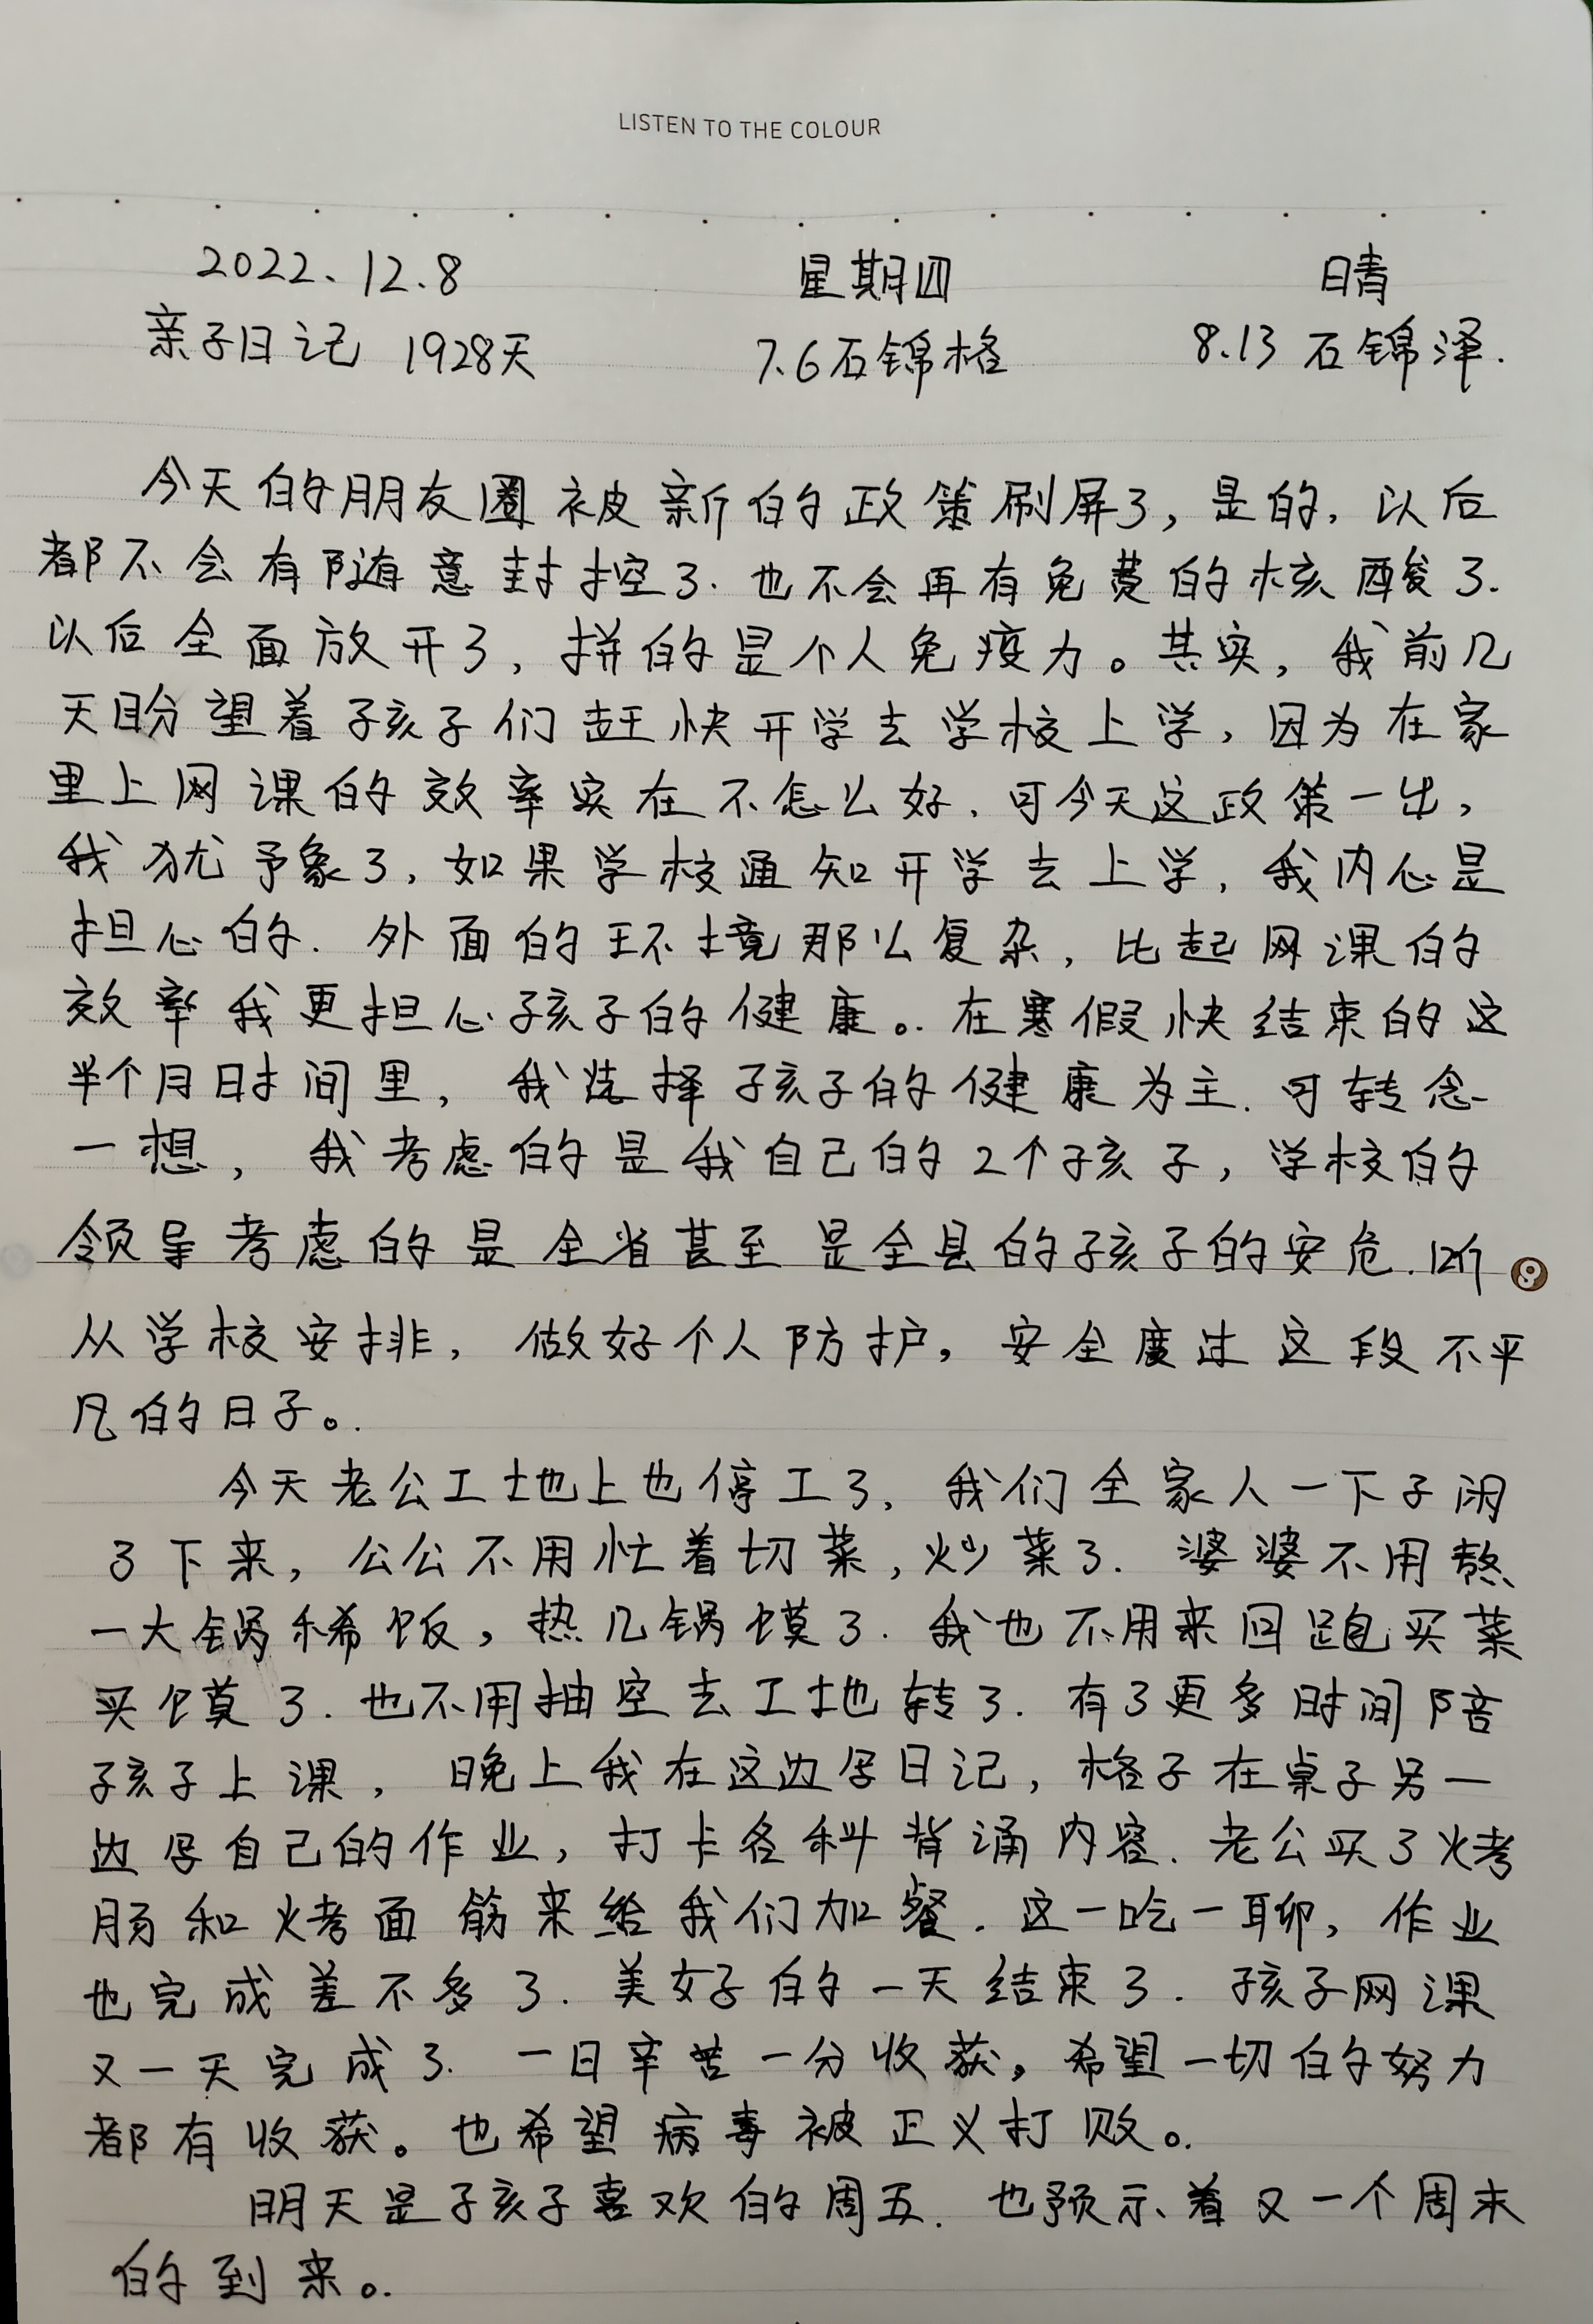 LISTEN TO THE COLOUR
2022.12.8 星期四 晴
亲子日记 1928天 7.6石锦格 8.13 石锦泽.
今天的朋友圈被新的政策刷屏了,是的,以后
都不会有随意封控了.也不会再有免费的核酸了.
以后全面放开了,拼的是个人免疫力。其实,我前几
天盼望着孩子们赶快开学去学校上学,因为在家
里上网课的效率实在不怎么好,可今天这政策一出,
我犹予象了,如果学校通知开学去上学,我内心是
担心的.外面的环境那么复杂,比起网课的
效率我更担心孩子的健康。在寒假快结束的这
半个月时间里,我选择孩子的健康为主.可转念
一想,我考虑的是我自己的2个孩子,学校的
领导考虑的是全省甚至是全县的孩子的安危.听
从学校安排,做好个人防护,安全度过这段不平
凡的日子。
今天老公工地上也停工了,我们全家人一下子闲
了下来,公公不用忙着切菜,炒菜了.婆婆不用熬
一大锅稀饭,热几锅馍了.我也不用来回跑买菜
买馍了.也不用抽空去工地转了.有了更多时间陪
孩子上课,晚上我在这边写日记,格子在桌子另一
边写自己的作业,打卡各科背诵内容.老公买了烤
肠和烤面筋来给我们加餐.这一吃一聊,作业
也完成差不多了.美好的一天结束了.孩子网课
又一天完成了.一日辛苦一分收获,希望一切的努力
都有收获。也希望病毒被正义打败。
明天是孩子喜欢的周五.也预示着又一个周末
的到来。